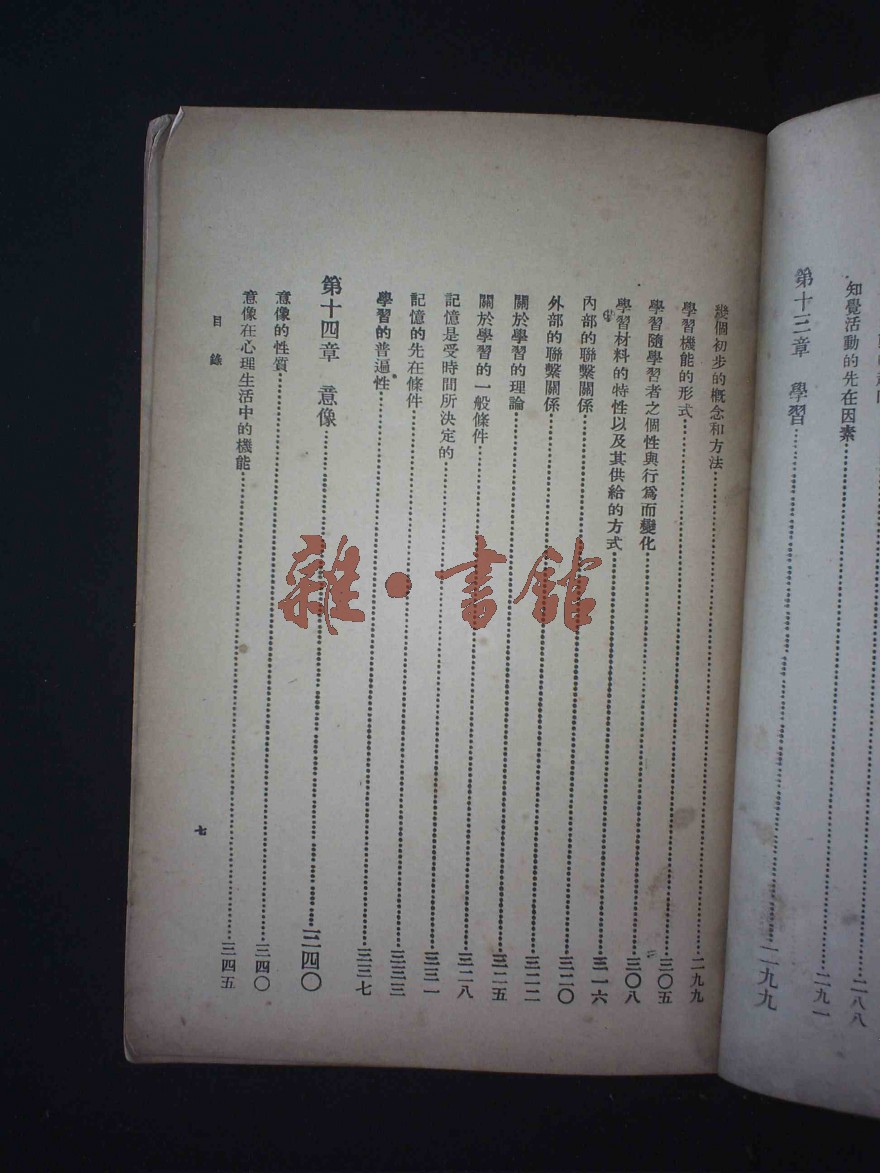 二八八
知覺活動的先在因素……二九一
第十三章　學習……二九九
幾個初步的概念和方法……二九九
學習機能的形式……三〇五
學習隨學習者之個性與行爲而變化……三〇八
學習材料的特性以及其供給的方式……三一六
內部的聯繫關係……三二〇
外部的聯繫關係……三二二
關於學習的理論……三二五
關於學習的一般條件……三二八
記憶是受時間所決定的……三三一
記憶的先在條件……三三三
學習的普遍性……三三七
第十四章　意像……三四〇
意像的性質……三四〇
意像在心理生活中的機能……三四五
目錄
七
雜·書館